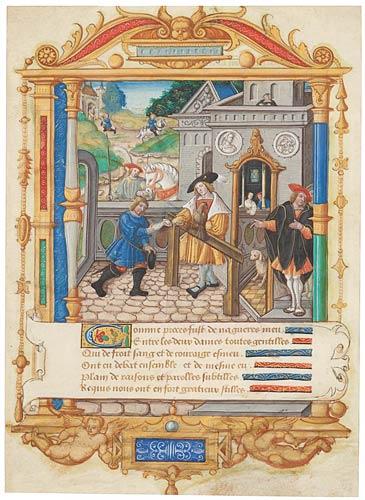 Comme proces fust de nagueres meu
Entre les deux dames toutes gentilles
Qui de froit sang et de couraige esmeu
Ont eu debat ensemble et de mesme eu
Plain de raisons et parolles subtilles
Requis nous ont en fort gratieux stilles